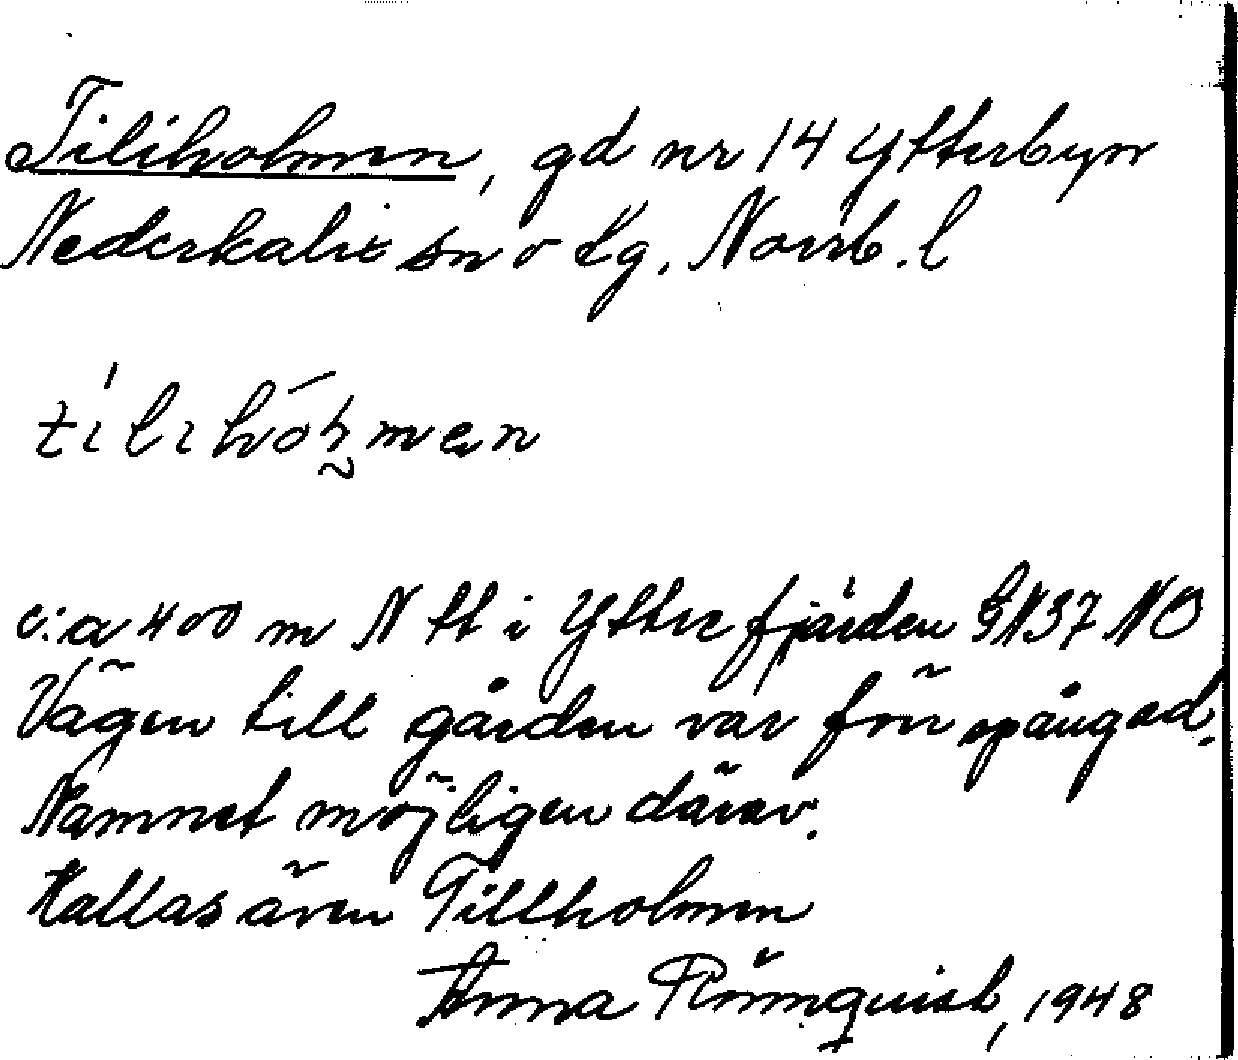 Tiliholmen, gd nr 14 Ytterbyn
Nederkalix sn o tg. Norrb. l
tiliholmen
c:a 400 m N tt i Yttre fjärden GN37 NO
Vägen till gården var förr spångad.
Namnet möjligen därav.
Kallas även Tillholmen
Anna Rönnquist, 1948